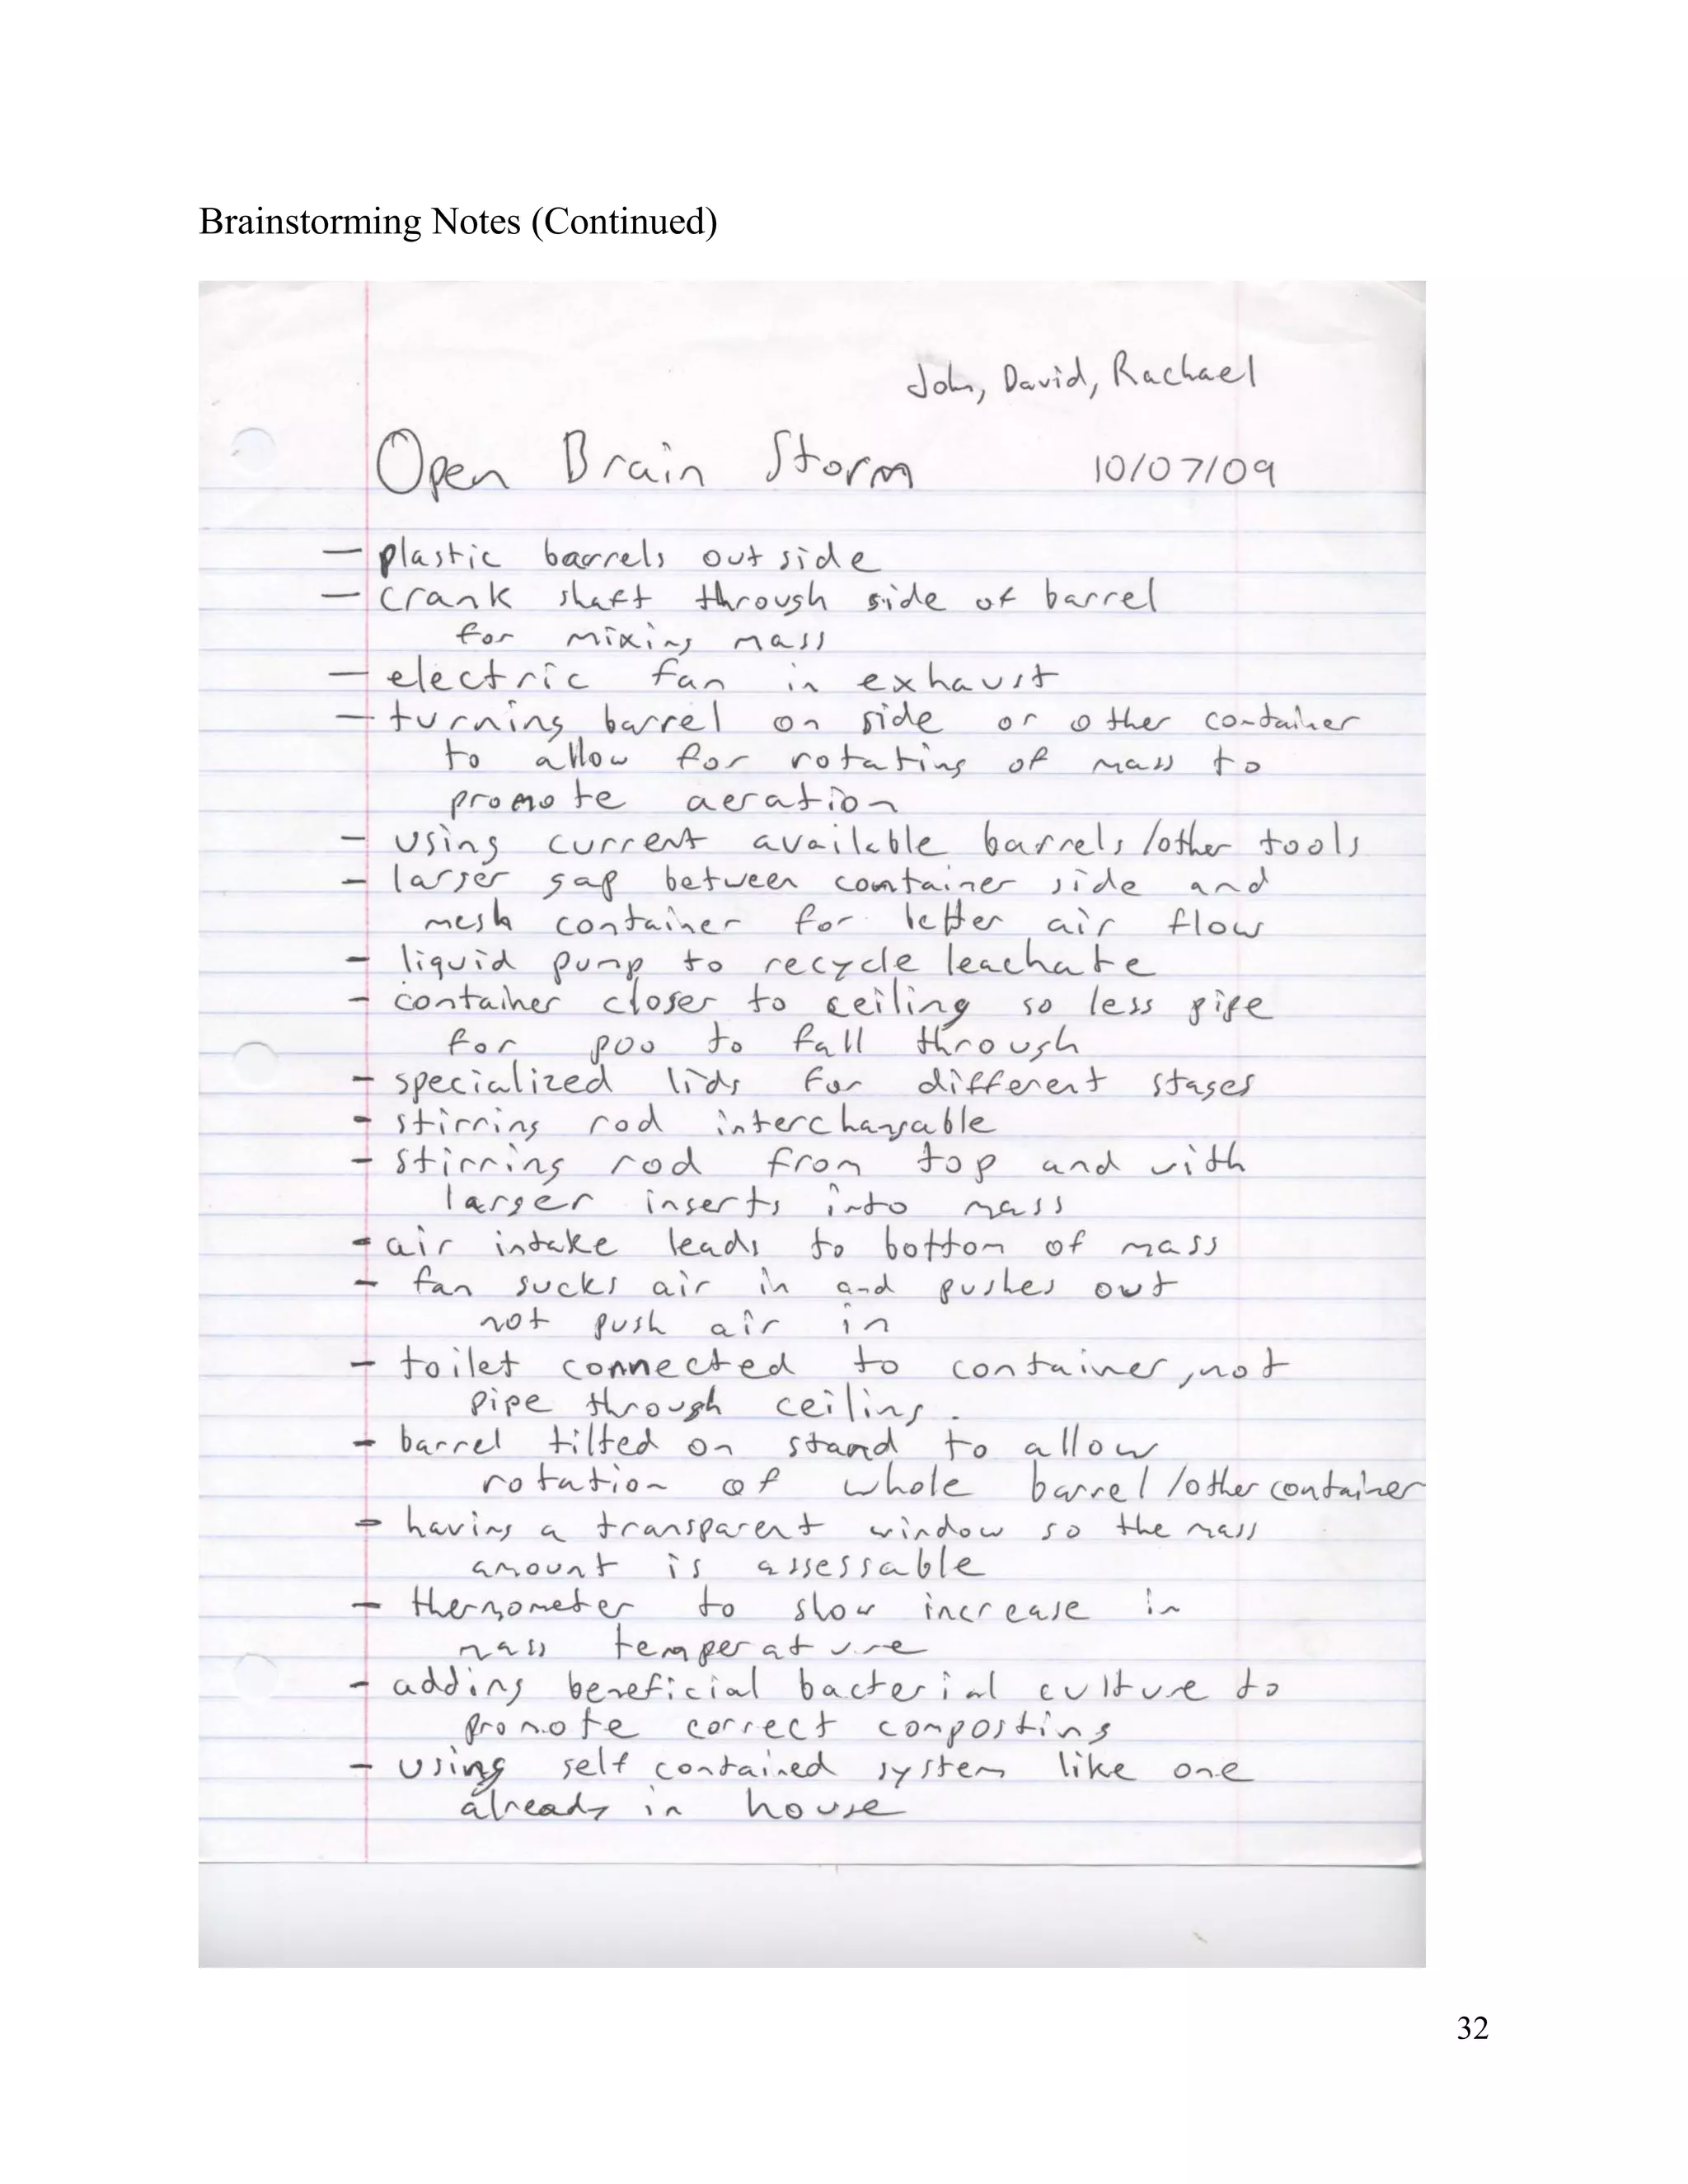 Brainstorming Notes (Continued)
John, David, Rachael
Open Brain Storm 10/07/09
— plastic barrels outside
— crank shaft through side of barrel
for mixing mass
— electric fan in exhaust
— turning barrel on side or other container
to allow for rotating of mass to
promote aeration
- using current available barrels/other tools
- larger gap between container side and
mesh container for better air flow
- liquid pump to recycle leachate
- container closer to ceiling so less pipe
for poo to fall through
- specialized lids for different stages
- stirring rod interchangable
- stirring rod from top and with
larger inserts into mass
- air intake leads to bottom of mass
- fan sucks air in and pushes out
not push air in
- toilet connected to container, not
pipe through ceiling.
- barrel tilted on stand to allow
rotation of whole barrel/other container
- having a transparent window so the mass
amount is assessable
- thermometer to show increase in
mass temperature
- adding beneficial bacterial culture to
promote correct composting
- using self contained system like one
already in house
32